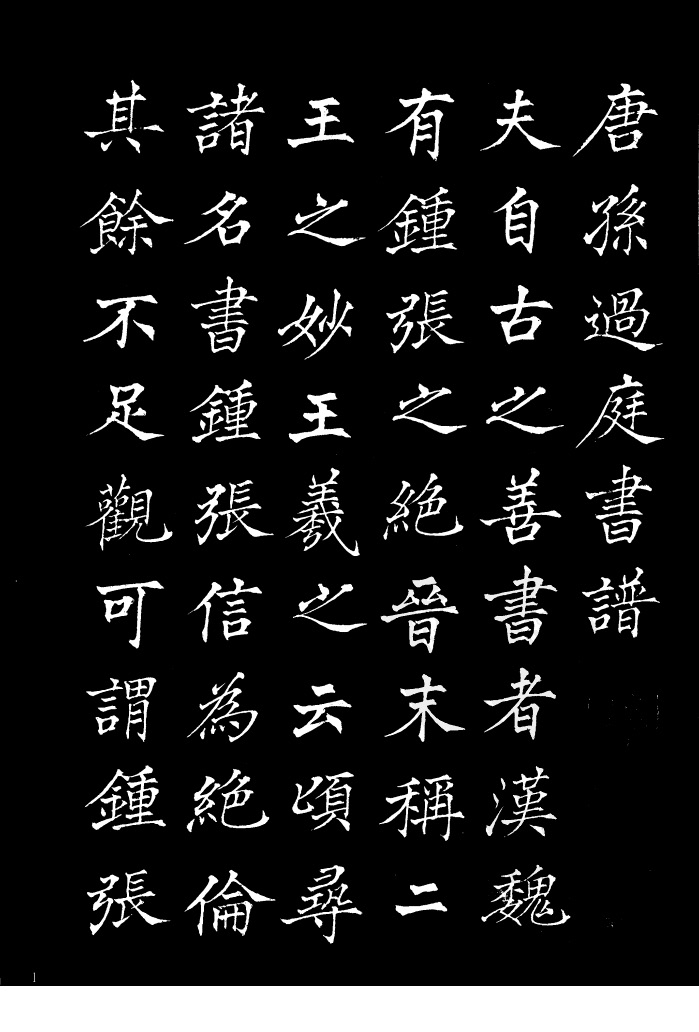 唐孫過庭書譜
夫自古之善書者漢魏
有鍾張之絕晉末稱二
王之妙王羲之云頃尋
諸名書鍾張信為絕倫
其餘不足觀可謂鍾張
1